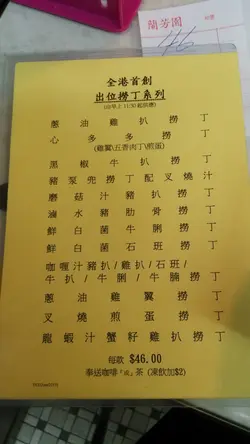 蘭芳園
46
全港首創
出位撈丁系列
(由早上11:30起供應)
蔥油雞扒撈丁
心多多撈丁
(雞翼\五香肉丁\煎蛋)
黑椒牛扒撈丁
豬泵兜撈丁配叉燒汁
蘑菇汁豬扒撈丁
滷水豬肋骨撈丁
鮮白菌牛脷撈丁
鮮白菌石班撈丁
咖喱汁豬扒/雞扒/石班/
牛扒/牛脷/牛腩撈丁
蔥油雞翼撈丁
叉燒煎蛋撈丁
龍蝦汁蟹籽雞扒撈丁
每款 $46.00
奉送咖啡『或』茶 (凍飲加$2)